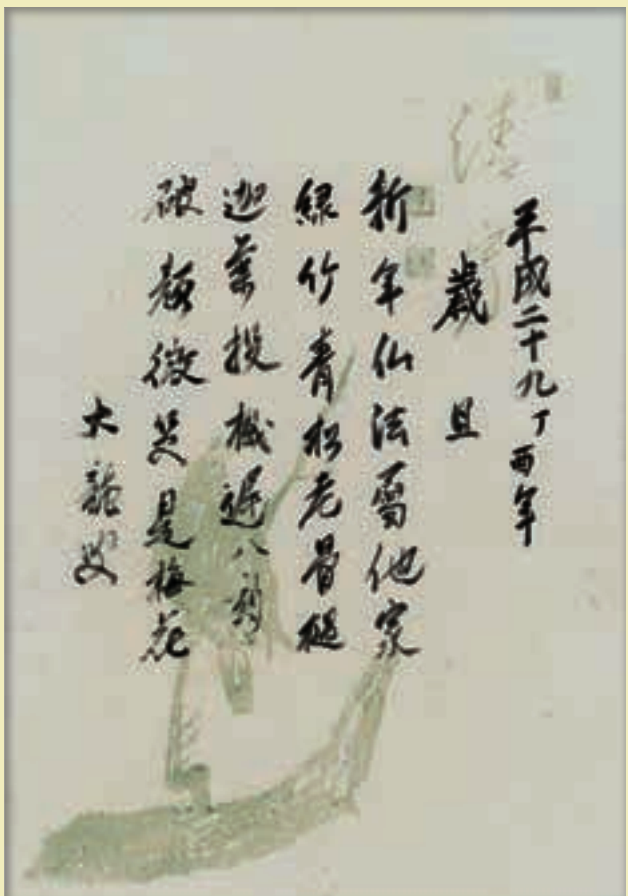 平成二十九丁酉年
歳旦
新年仏法属他家
緑竹青松老
迦葉投機遅八刻
破顔微笑是梅花
大龍叟